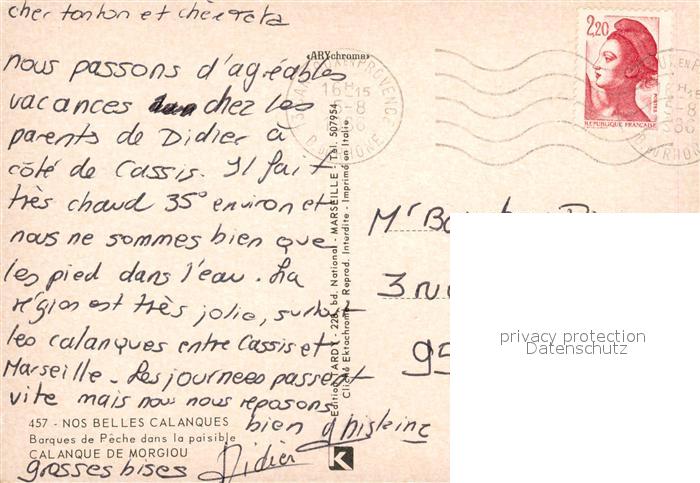 cher tonton et chère tata
nous passons d'agréables
vacances chez les
parents de Didier à
côté de Cassis. Il fait
très chaud 35° environ et
nous ne sommes bien que
les pied dans l'eau. La
région est très jolie, surtout
les calanques entre Cassis et
Marseille. Les journees passent
vite mais nous nous reposons
bien ghislaine
grosses bises Didier
457 - NOS BELLES CALANQUES
Barques de Pêche dans la paisible
CALANQUE DE MORGIOU
«ARYchrome»
Edition TARDY - 228, bd. National - MARSEILLE - Tél. 507954
Cliché Ektachrome - Reprod. Interdite - Imprimé en Italie
K
16H15
5-8
EN PROVENCE
B. DU RHONE
2,20
POSTES
REPUBLIQUE FRANÇAISE
Mr
3 rue
95
privacy protection
Datenschutz